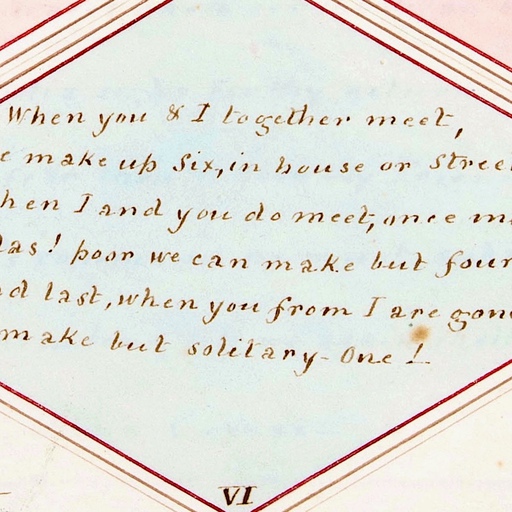 When you & I together meet,
make up Six, in house or Stree
hen I and you do meet, once m
las! poor we can make but four
d last, when you from I are gon
make but solitary - One!
VI